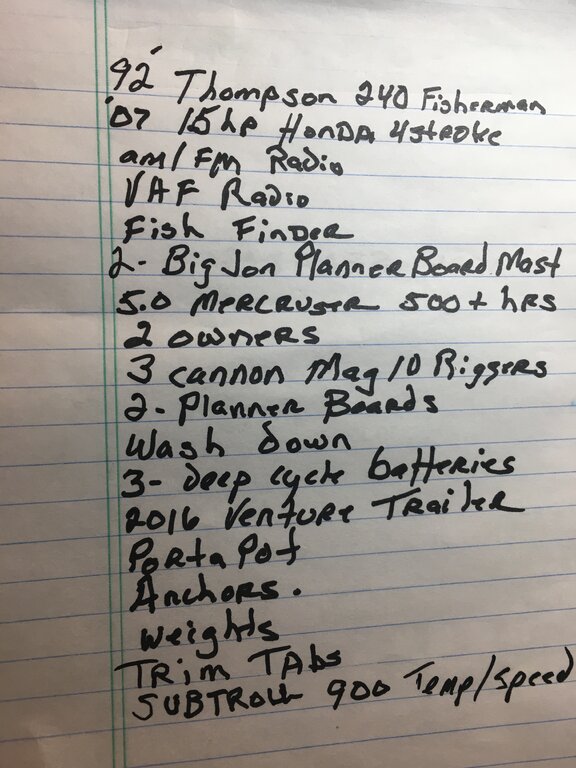 92' Thompson 240 Fisherman
'07 15hp HONDA 4stroke
am/Fm Radio
VHF Radio
Fish Finder
2- Big Jon Planner Board Mast
5.0 mercruser 500+ hrs
2 owners
3 cannon Mag 10 Riggers
2- Planner Boards
Wash down
3- deep cycle batteries
2016 Venture Trailer
Porta Pot
Anchors.
weights
TRim TAbs
SUBTROLL 900 Temp/speed